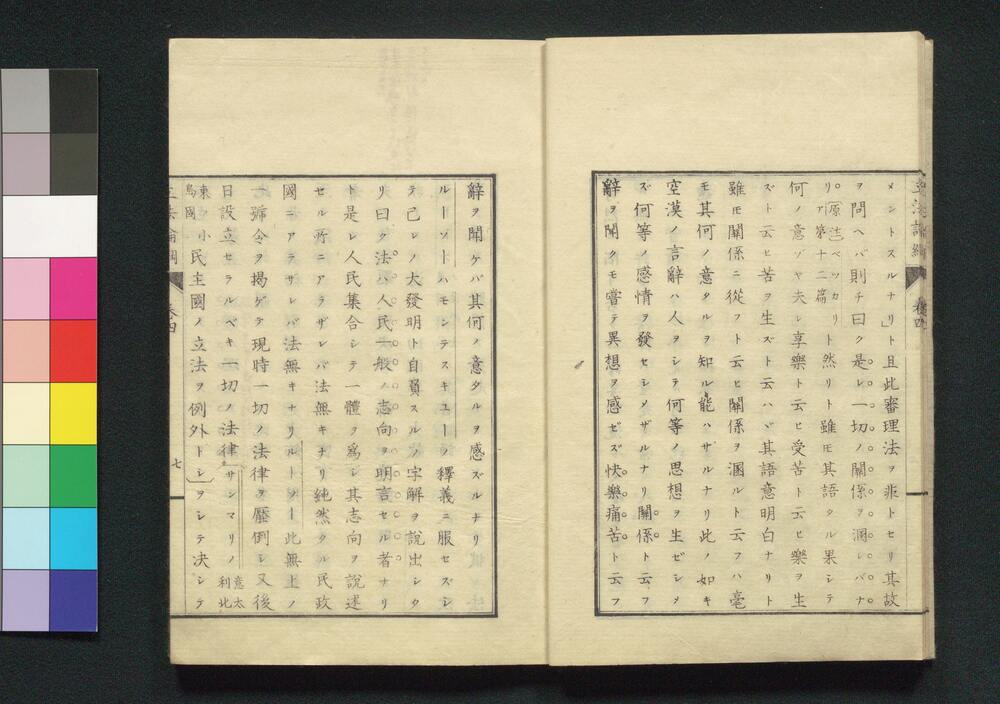 メントスルナリ」ト且此審理法ヲ非トセリ其故
ヲ問ヘバ則チ曰ク是レ一切ノ關係ヲ溷レバナ
リ
原法
ベッカリ
ア第十二篇
ト然リト雖モ其語タル果シテ
何ノ意ゾヤ夫レ享樂ト云ヒ受苦ト云ヒ樂ヲ生
ズト云ヒ苦ヲ生ズト云ハヾ其語意明白ナリト
雖モ關係ニ從フト云ヒ關係ヲ溷ルト云フハ毫
モ其何ノ意タルヲ知ル能ハサルナリ此ノ如キ
空漠ノ言辭ハ人ヲシテ何等ノ思想ヲ生ゼシメ
ズ何等ノ感情ヲ發セシメザルナリ關係ト云フ
辭ヲ聞クモ嘗テ異想ヲ感ゼズ快樂痛苦ト云フ
辭ヲ聞ケバ其何ノ意タルヲ感ズルナリ
ルーソーハモンテスキユーノ釋義ニ服セズシ
テ己レノ大發明ト自負スルノ字解ヲ說出シタ
リ曰ク法ハ人民一般ノ志向ヲ明言セル者ナリ
ト是レ人民集合シテ一體ヲ爲シ其志向ヲ說述
セル所ニアラザレバ法無キナリ純然タル民政
國ニアラサレバ法無キナリルートソー此無上ノ
一號令ヲ揭ゲテ現時一切ノ法律ヲ壓倒シ又後
日設立セラルベキ一切ノ法律
サンマリノ
意太
利北
東ノ小
島國
民主國ノ立法ヲ例外トシヲシテ決シテ
卷四
七